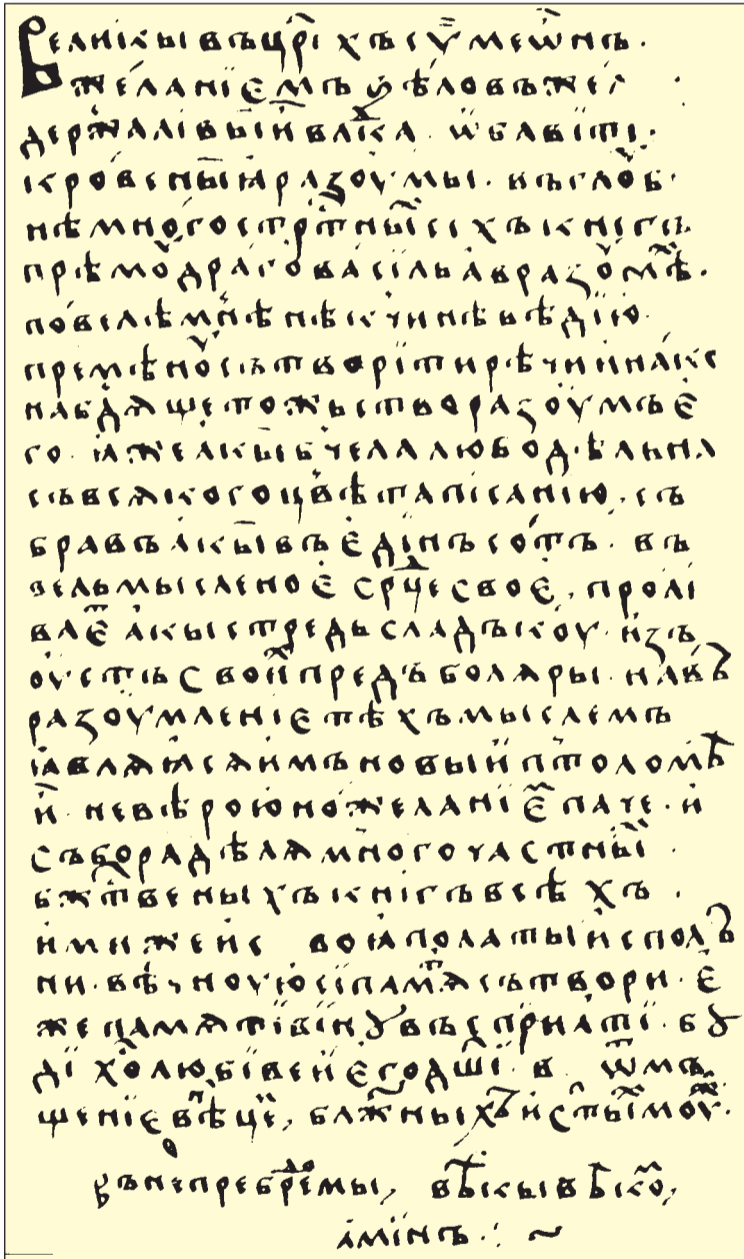 Велиікыи въ цр҃і хъ сѵ̈меѡ҃нъ.
желанїємъ ѕѣло въжел
держалівыи влⷣка. ѡбавїті.
кро́веныѧ разоумы. въ глоⷹб
нѣ многострⷫтныїхъ книгъ
прѣмоⷹдраго васільа в разоⷹмѣⷯ.
повелѣ мнѣ нѣкчинѣ вѣдїю.
премѣноⷹ сътворїти рѣчи и накѡ
набдѧще тожьство разоумъ є
го. ꙗже акы бчела любодѣльна
съ всѧкого цвѣта пісанїю. съ
бравъ акы въ єдїнъ сотъ. въ
вельмысленоє ср҃дце своє, пролі
ваєⷮ акы стредь сладъкоу изъ
оустъ своиⷯ предъ болѧры. на въ
разоумленіє тѣхъ мыслемъ
ꙗвлѧꙗсѧ имъ новыи птоломѣ
и. не вѣрою но желанїєⷨ паче. и
събора дѣлѧ многочастныїⷯ.
бжⷭтвеныхъ кнігъ всѣхъ.
ими же и своꙗ полаты исполъ
ни. вѣчноую сї памⷮѧ сътвори. є
же памѧтїв їноу въспрїꙗті. бꙋ
дї хⷭолюбївеи єго дш҃ї. в ѡⷮмъ
щенїє вѣⷩцеⷨ, блжⷩныхъ и ст҃ыїⷯ моуⷤ.
въ непребреⷣмы, вⷦѣкы вѣкоⷨ,
амінъ.: ~